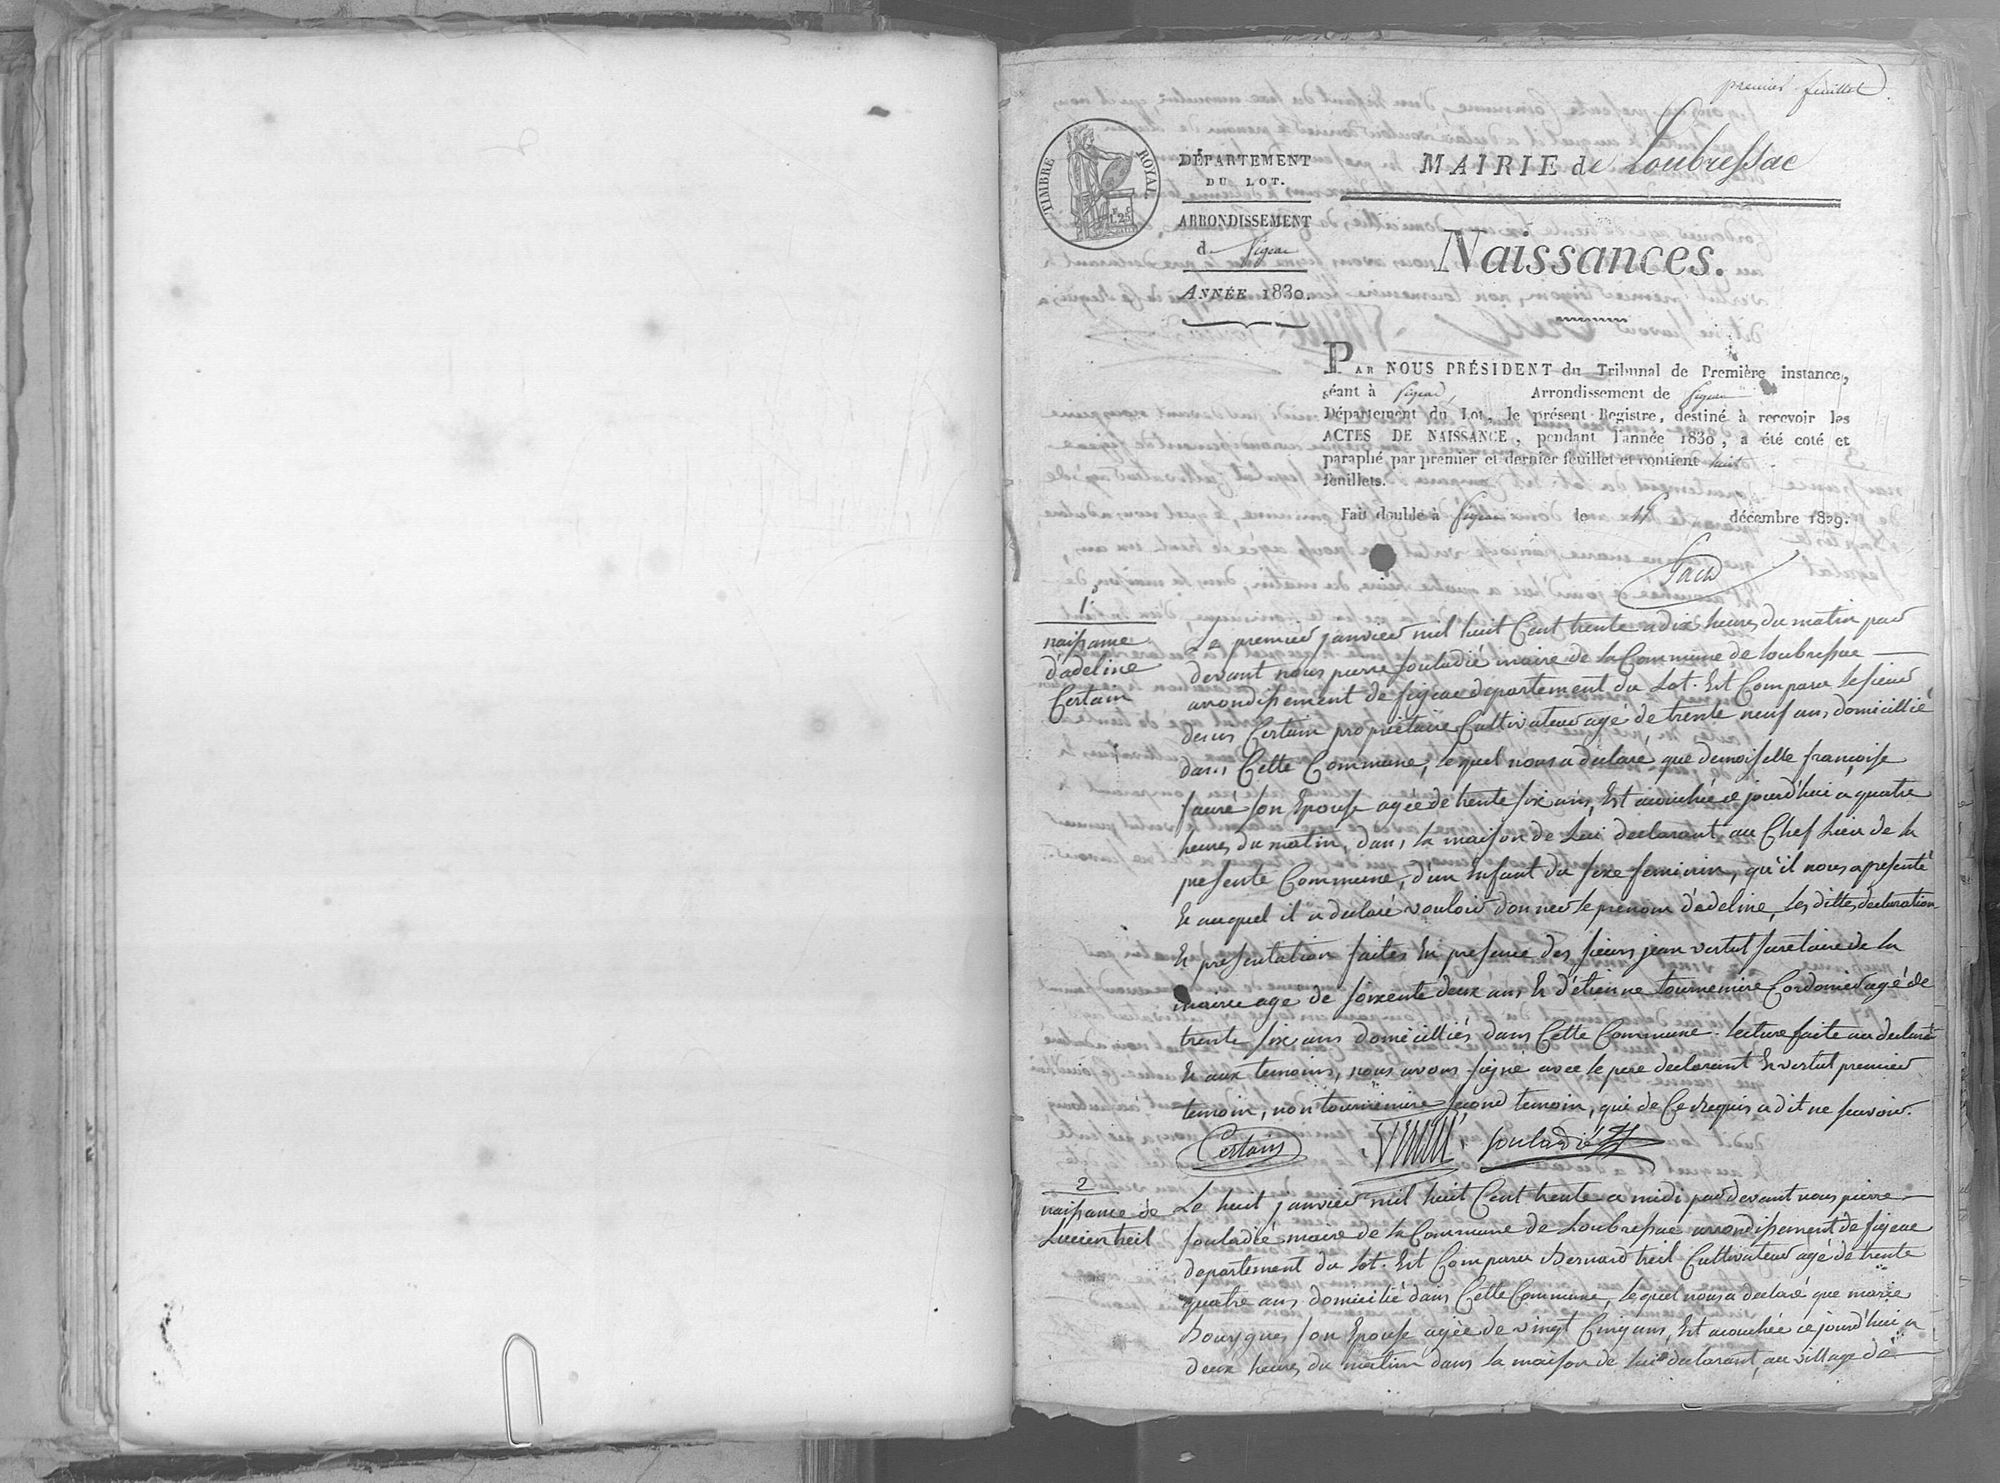 premier feuillet
TIMBRE ROYAL
1.25
DÉPARTEMENT
DU LOT.
ARRONDISSEMENT
d figeac
ANNÉE 1830.
MAIRIE de Loubressac
Naissances.
PAR NOUS PRÉSIDENT du Tribunal de Première instance,
séant à figeac, Arrondissement de figeac
Département du Lot, le présent Registre, destiné à recevoir les
ACTES DE NAISSANCE, pendant l'année 1830, a été coté et
paraphé par premier et dernier feuillet et contient huit
feuillets.
Fait double à figeac le décembre 1829.
1.
naissance
d'adeline
Certain
Le premier janvier mil huit Cent trente a dix heures du matin par
devant nous pierre souladié maire de la Commune de loubressac
arrondissement de figeac departement du Lot. Est Comparu le sieur
Certain propriétaire Cultivateur agé de trente neuf ans, domicillié
dans Cette Commune, lequel nous a déclaré que demoiselle françoise
fauré son Epouse agée de trente six ans, Est acouchée ce jourd'hui a quatre
heures du matin, dans la maison de Lui declarant au Chef Lieu de la
presente Commune, d'un Enfant du sexe feminin, qu'il nous a presenté
Et auquel il a declaré vouloir donner le prenom d'adeline, les dittes declaration
Et presentation faites En presence des sieurs jean vertut secretaire de la
mairie agé de soixente deux ans Et d'étienne tournemire Cordonier agé de
trente six ans domicilliés dans Cette Commune. lecture faite au declarant
Et aux temoins, nous avons signé avec le pere declarant Et vertut premier
temoin, non tournemire second temoin, qui de Ce Requis a dit ne savoir.
Certain Vertut souladié
2
naissance de
Lucien treil
Le huit janvier mil huit Cent trente a midi par devant nous pierre
souladié maire de la Commune de Loubressac arrondissement de figeac
departement du Lot. Est Comparu Bernard treil Cultivateur agé de trente
quatre ans domicilié dans Cette Commune, lequel nous a declaré que marie
Bouygues son Epouse agée de vingt Cinq ans, Est acouchée ce jourd'hui a
deux heures du matin dans la maison de lui declarant, au village de